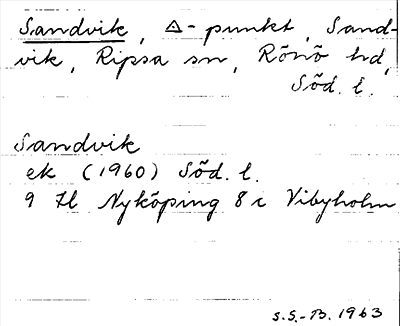 Sandvik, △-punkt, Sand-
vik, Ripsa sn, Rönö hd,
Söd. l.
Sandvik
ek (1960) Söd. l.
9 H Nyköping 8 c Vibyholm
S.S.-B. 1963